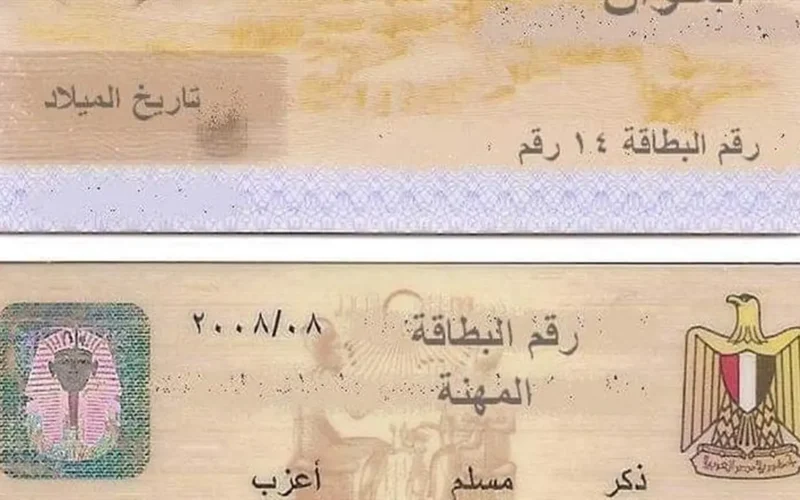 العنوان
تاريخ الميلاد
رقم البطاقة ١٤ رقم
رقم البطاقة ٢٠٠٨/٠٨
المهنة
ذكر مسلم أعزب